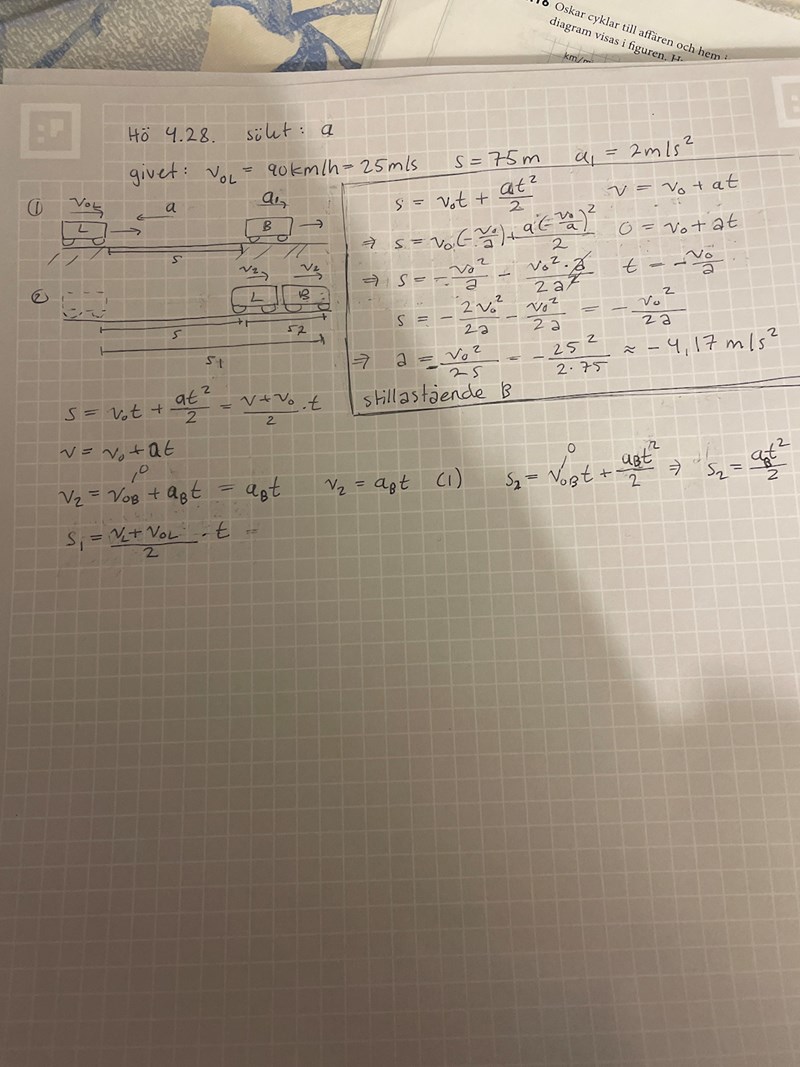 .18 Oskar cyklar till affären och hem i
diagram visas i figuren. H
km/m
Hö 4.28. sökt: a
givet: v₀L = 90km/h = 25m/s s = 75m a₁ = 2m/s²
① v₀L a a₁
L B
s
② v₂ v₂
L B
s s2
s1
s = v₀t + at²/2 v = v₀ + at
⇒ s = v₀·(-v₀/a) + a·(-v₀/a)²/2 0 = v₀ + at
⇒ s = -v₀²/a - v₀²·a/2a² t = -v₀/a
s = -2v₀²/2a - v₀²/2a = -v₀²/2a
⇒ a = -v₀²/2s = -25²/2·75 ≈ -4,17 m/s²
stillastående B
s = v₀t + at²/2 = v+v₀/2 · t
v = v₀ + at
v₂ = v₀B + aBt = aBt v₂ = aBt (1) s₂ = v₀Bt + aBt²/2 ⇒ s₂ = aBt²/2
0 0
s₁ = vL+v₀L/2 · t =